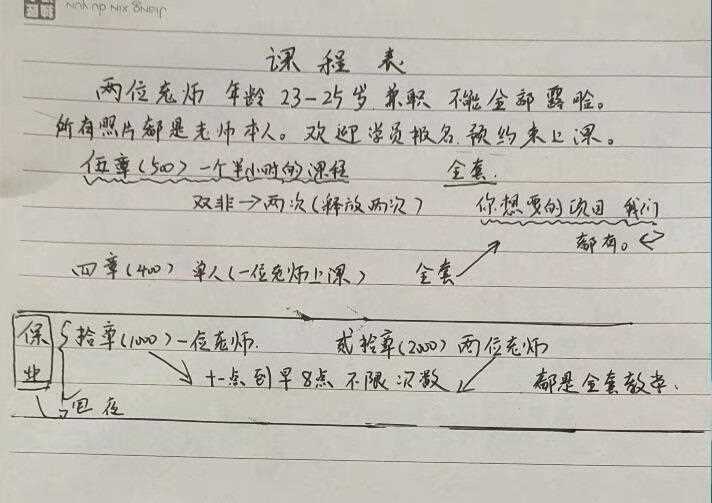 课程表
两位老师 年龄 23-25岁 兼职 不能全部露脸。
所有照片都是老师本人。欢迎学员报名 预约来上课。
伍章(500) 一个半小时的课程 全套.
双非→两次(释放两次) 你想要的项目 我们
都有。
四章(400) 单人(一位老师上课) 全套
保业
拾章(1000)一位老师. 贰拾章(2000) 两位老师
十一点到早8点 不限次数 都是全套教学.
包夜